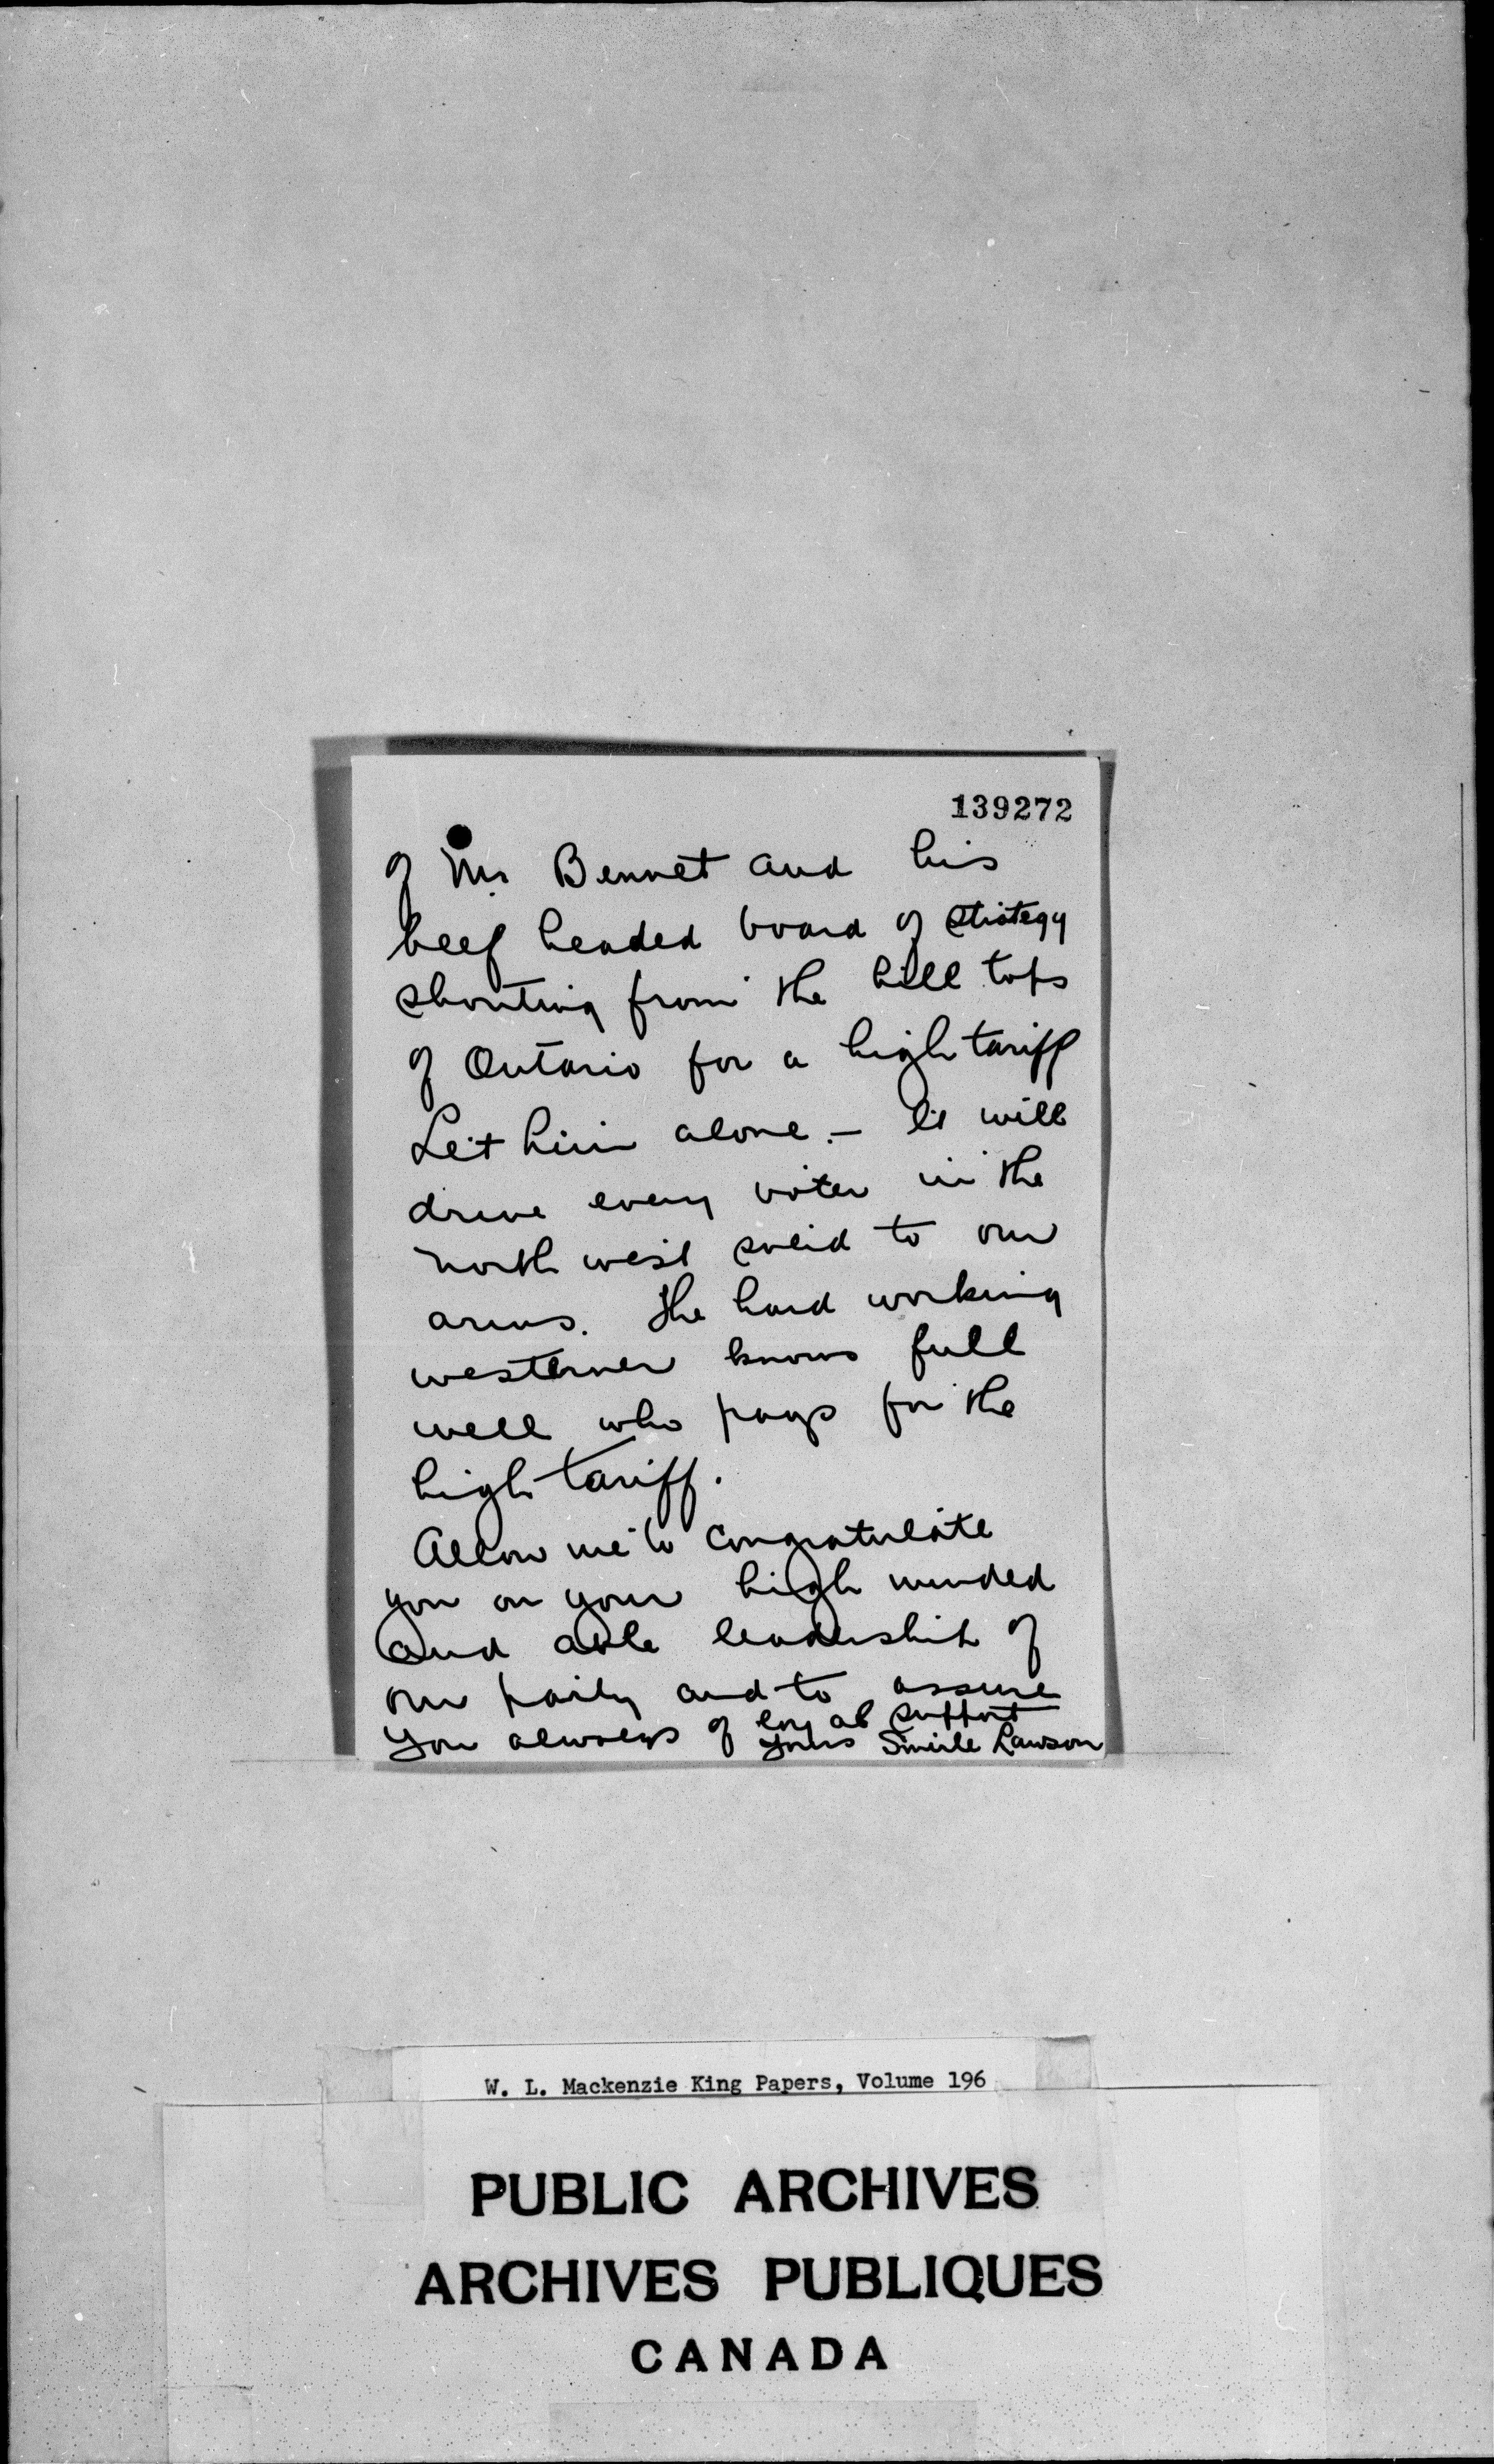 139272
of Mr Bennet and his
beef headed board of strategy
shouting from the hill tops
of Ontario for a high tariff
Let him alone. - It will
drive every voter in the
north west solid to our
arms. The hard working
westerner knows full
well who pays for the
high tariff.
Allow me to congratulate
you on your high minded
and able leadership of
our party and to assure
you always of loyal support
yours Smirle Lawson
W. L. Mackenzie King Papers, Volume 196
PUBLIC ARCHIVES
ARCHIVES PUBLIQUES
CANADA